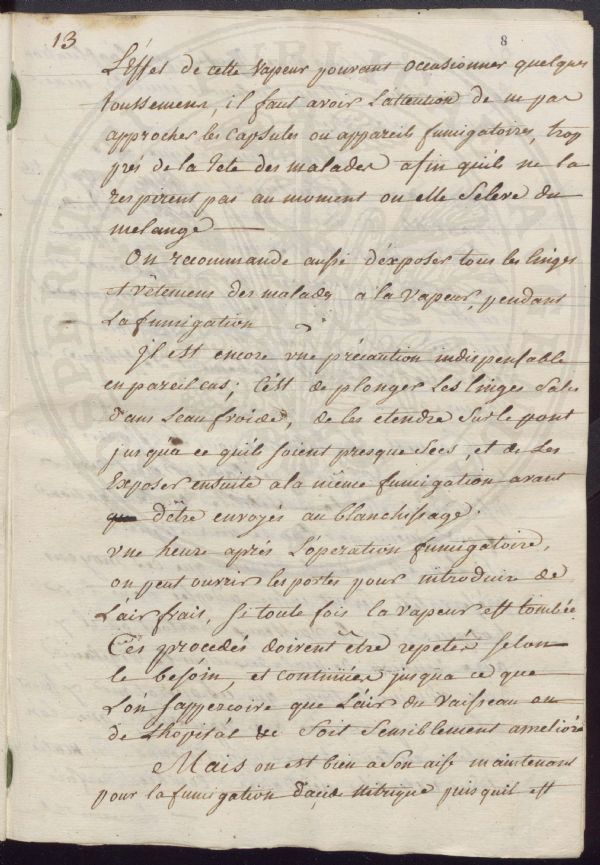 13
8
L'Effet de cette vapeur pouvant occasionner quelques
toussemens, il faut avoir l'attention de ne pas
approcher les capsules ou appareils fumigatoires, trop
prés de la Tete des malades afin qu'ils ne la
respirent pas au moment ou elle s'eleve du
melange
On recommande aussi d'éxposer tous les linges
et vêtemens des malades a la vapeur, pendant
la fumigation
Il est encore une précaution indispensable
en pareil cas; C'ést de plonger les linges sales
dans l'eau froide, de les etendre sur le pont
jusqu'a ce qu'ils soient presque secs, et de les
Exposer ensuite a la même fumigation avant
d'être envoyés au blanchissage.
Une heure aprés l'operation fumigatoire,
on peut ouvrir les portes pour introduire de
l'air frais, si toute fois la vapeur est tombée.
Ces procedés doivent être repetés selon
le besoin, et continués jusqua ce que
l'on s'apperçoive que l'air du vaisseau ou
de l'hopital &c soit sensiblement amelioré
Mais on est bien a son aise maintenant
pour la fumigation d'acide nitrique puisqu'il est